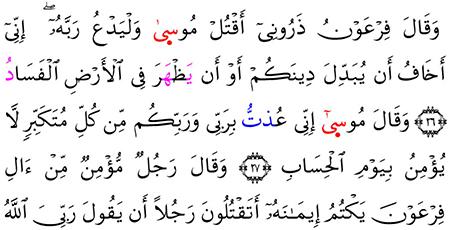 وَقَالَ فِرْعَوْنُ ذَرُونِىٓ أَقْتُلْ مُوسىٰ وَلْيَدْعُ رَبَّهُۥٓ ۖ إِنِّىٓ
أَخَافُ أَن يُبَدِّلَ دِينَكُمْ أَوْ أَن يَظْهَرَ فِى ٱلْأَرْضِ ٱلْفَسَادُ
﴿٢٦﴾ وَقَالَ مُوسىٰٓ إِنِّى عُذتُّ بِرَبِّى وَرَبِّكُم مِّن كُلِّ مُتَكَبِّرٍ لَّا
يُؤْمِنُ بِيَوْمِ ٱلْحِسَابِ ﴿٢٧﴾ وَقَالَ رَجُلٌ مُّؤْمِنٌ مِّنْ ءَالِ
فِرْعَوْنَ يَكْتُمُ إِيمَـٰنَهُۥٓ أَتَقْتُلُونَ رَجُلاً أَن يَقُولَ رَبِّىَ ٱللَّهُ